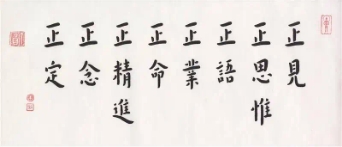 正見
正思惟
正語
正業
正命
正精進
正念
正定